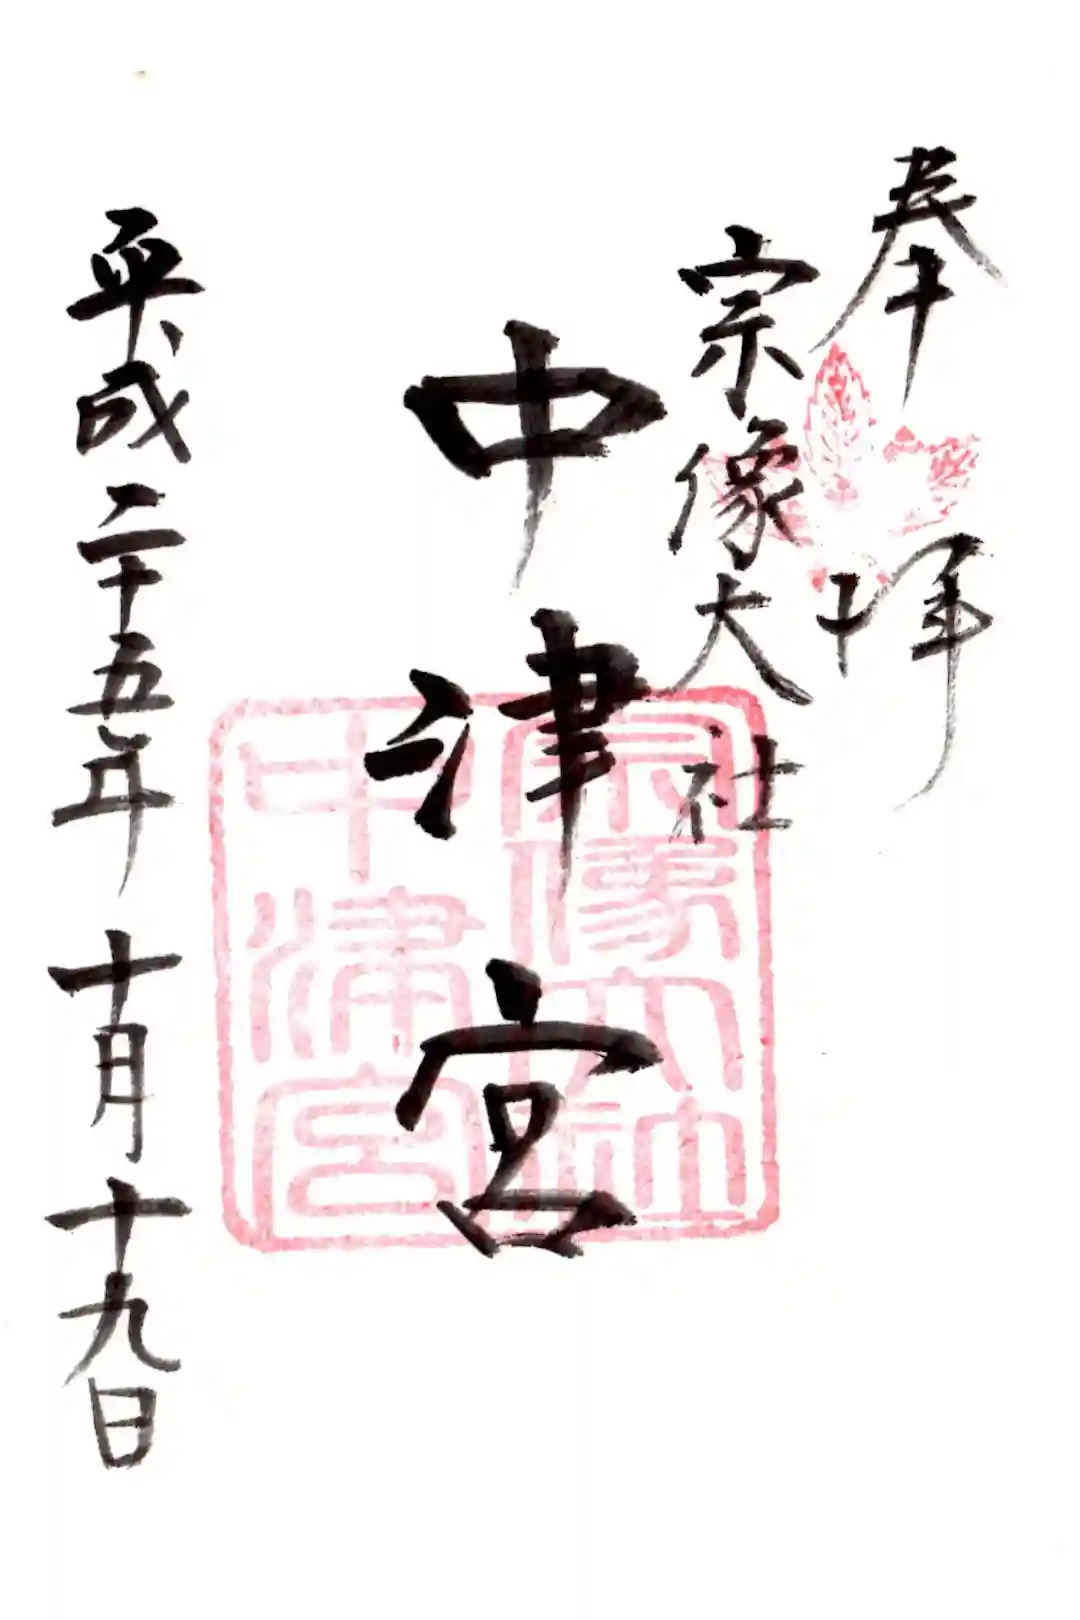 奉拝
宗像大社
中津宮
平成二十五年十月十九日
宗像大社
中津宮